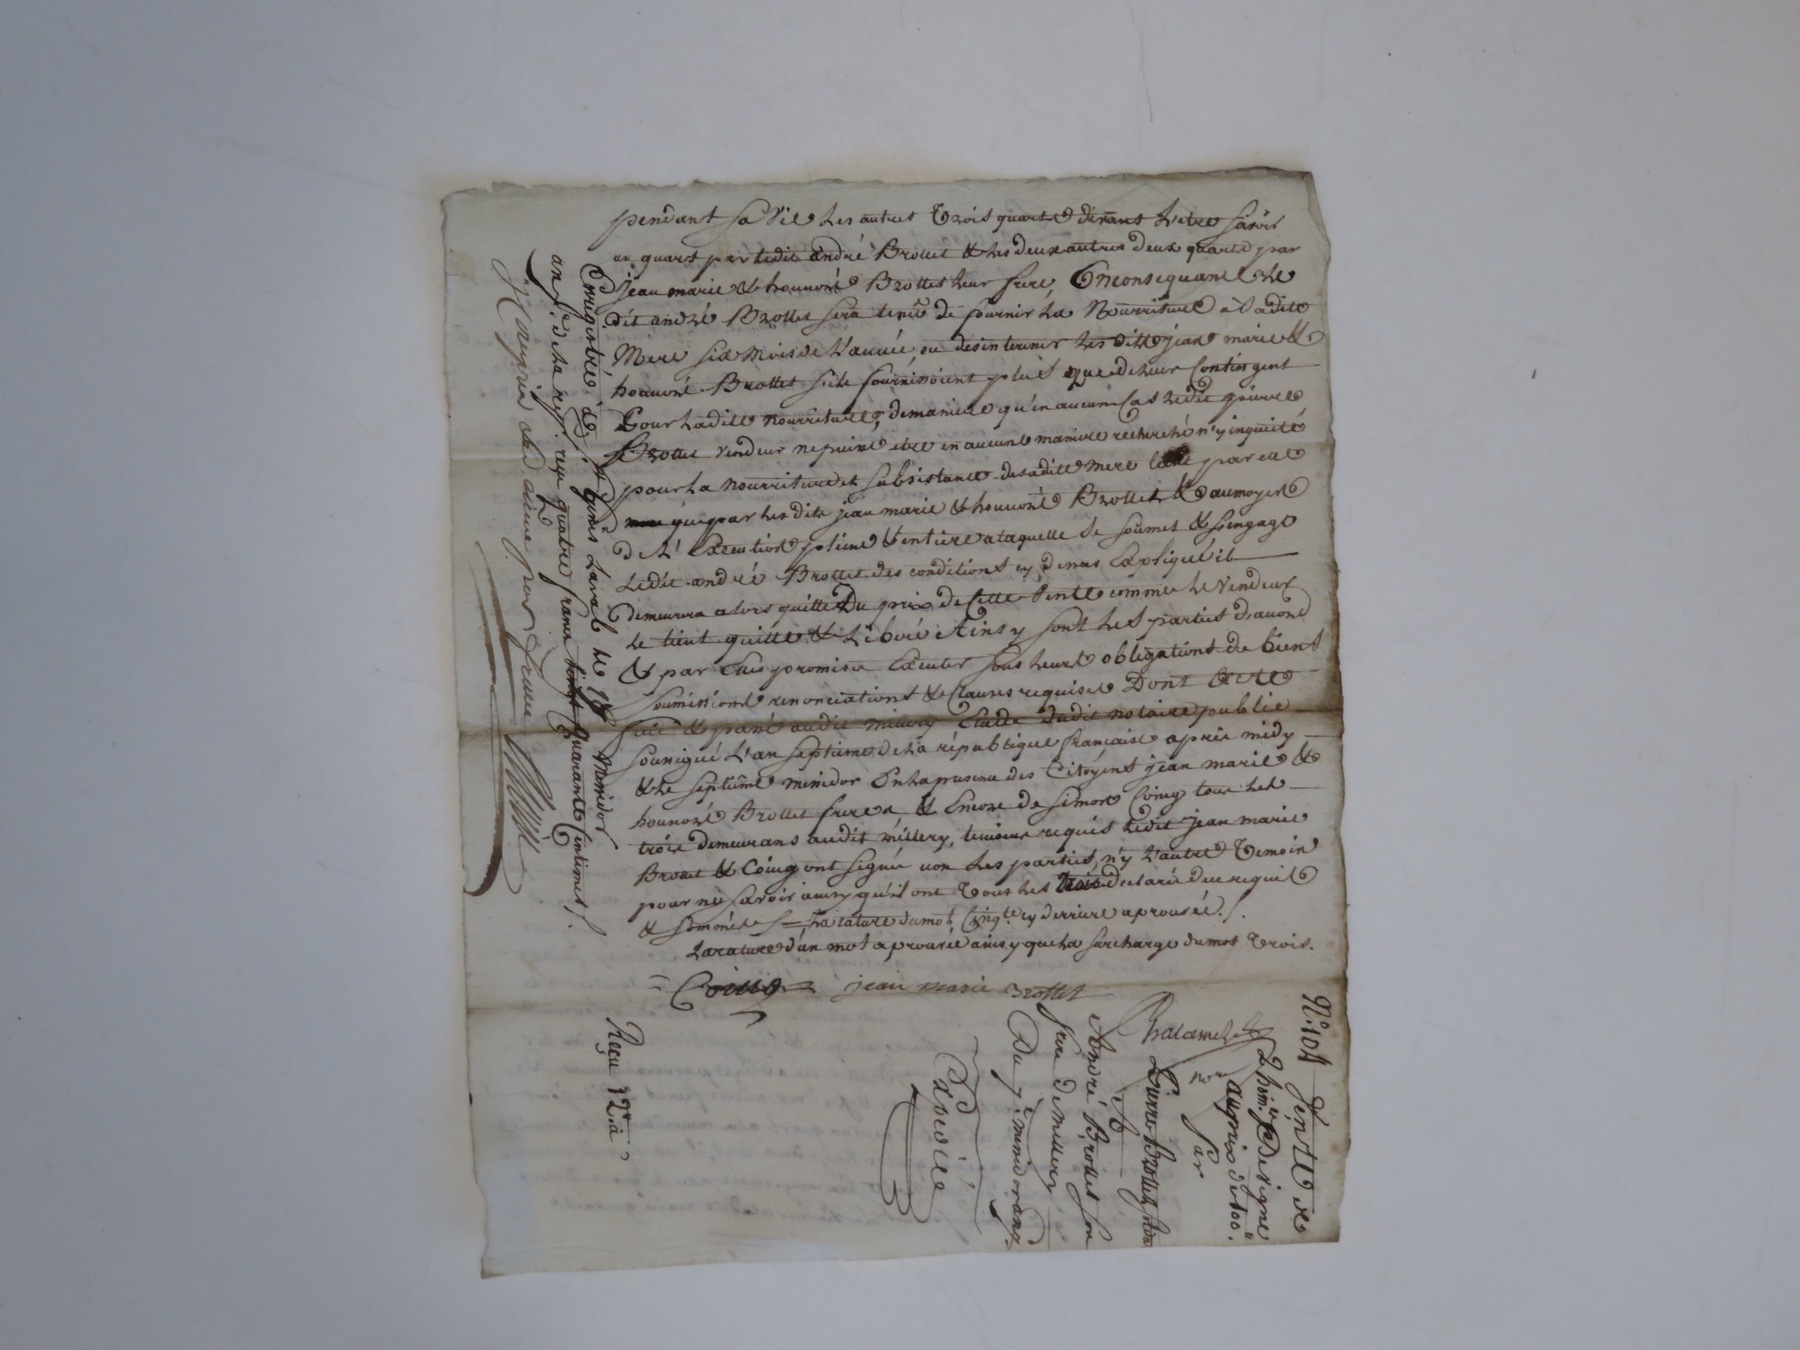 pendant sa vie les autres trois quarts devant l'etre savoir
un quart par ledit andré Brottet & les deux autres deux quarts par
jean marie & honnoré Brottet leur frere, Enconsequance le
dit andré Brottet sera tenu de fournir la Nourriture à ladite
Mere six mois de l'année, ou desinterener les dits jean marie &
honnoré Brottet sils fournissoient plus que de leur Contingent
Pour ladite nourriture, de maniere qu'en aucun Cas ledit pierre
Brottet vendeur ne puisse etre en aucune maniere recherché n'y inquieté
pour la nourriture et subsistance de sadite mere tant par elle
que par les dits jean marie & honnoré Brottet & aumoyen
De l'Execution pleine & entiere a laquelle se soumet & s'engage
Ledit andré Brottet des conditions cy dessus Expliqué il
demeurera alors quitte Du prix de Cette vente comme le vendeur
le tient quitte & Libéré Ainsy sont les parties d'accord
& par Elles promis Executer sous leurs obligations de biens
soumissions renonciations & Clauses requises Dont Acte
fait & passé audit millery Etude dudit notaire public
soussigné L'an septieme de la république française après midy
& le septiême messidor En la presence des Citoyens jean marie &
honnoré Brottet freres & Encore de simon Coing tous les
trois demeurans audit millery, temoins requis ledit jean marie
Brottet & Coing ont signé non les parties, n'y l'autre temoin
pour ne savoir ainsy qu'ils ont tous les trois declaré de ce requis
& somés la rature du mot Cinq.te cy derriere aprouvée./.
La rature d'un mot aprouvée ainsy que la surcharge du mot trois.
= Coing = jean marie Brottet
Chalamel
Enregistrée à S.t genis Laval le 18 Messidor
an 7.e de la rep. reçu quatre francs quarante Centimes /.
N.o 104 Vente de
2 hom.es de vigne
au prix de 400.
Par
Pierre Brottet
A
André Brottet son
frere de millery
Du 7.e messidor an 7.
Expédiée
Reçu 12